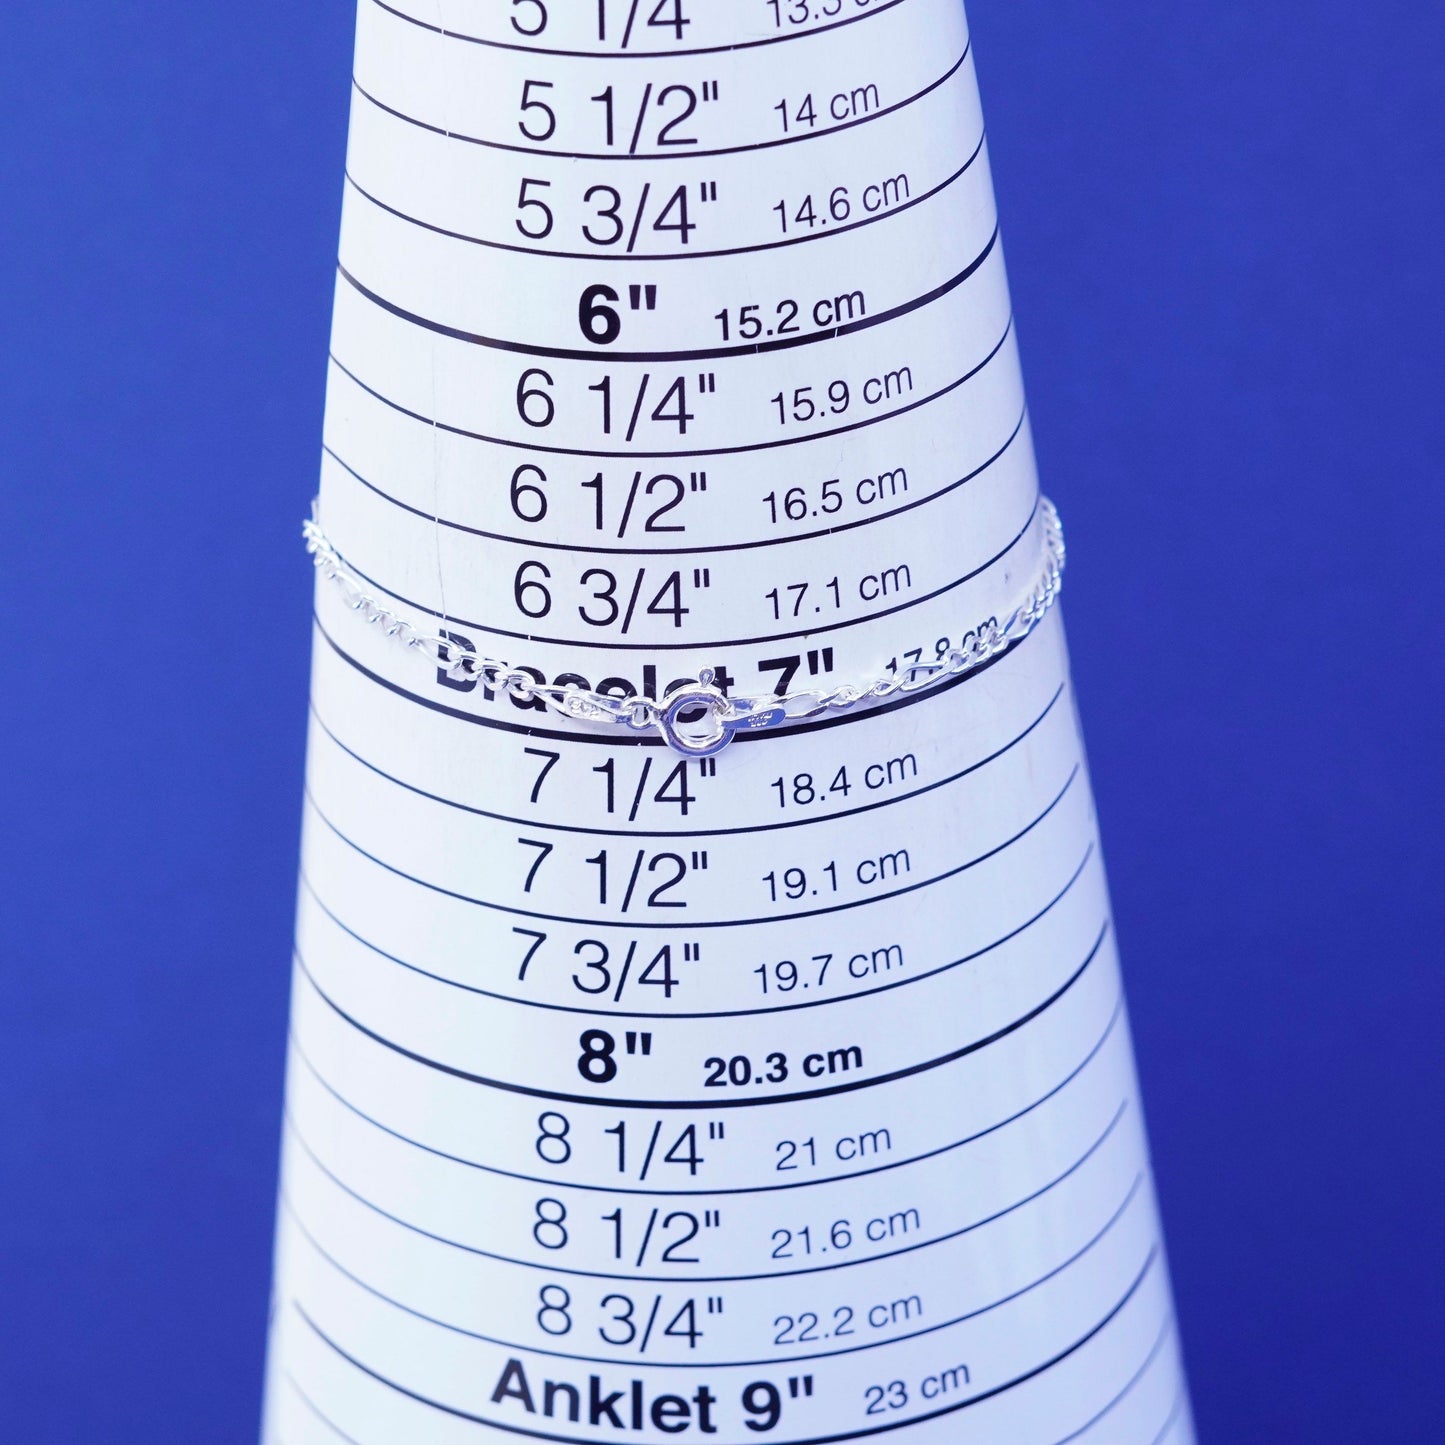 5 1/4 13.3
5 1/2" 14 cm
5 3/4" 14.6 cm
6" 15.2 cm
6 1/4" 15.9 cm
6 1/2" 16.5 cm
6 3/4" 17.1 cm
Bracelet 7" 17.8 cm
7 1/4" 18.4 cm
7 1/2" 19.1 cm
7 3/4" 19.7 cm
8" 20.3 cm
8 1/4" 21 cm
8 1/2" 21.6 cm
8 3/4" 22.2 cm
Anklet 9" 23 cm